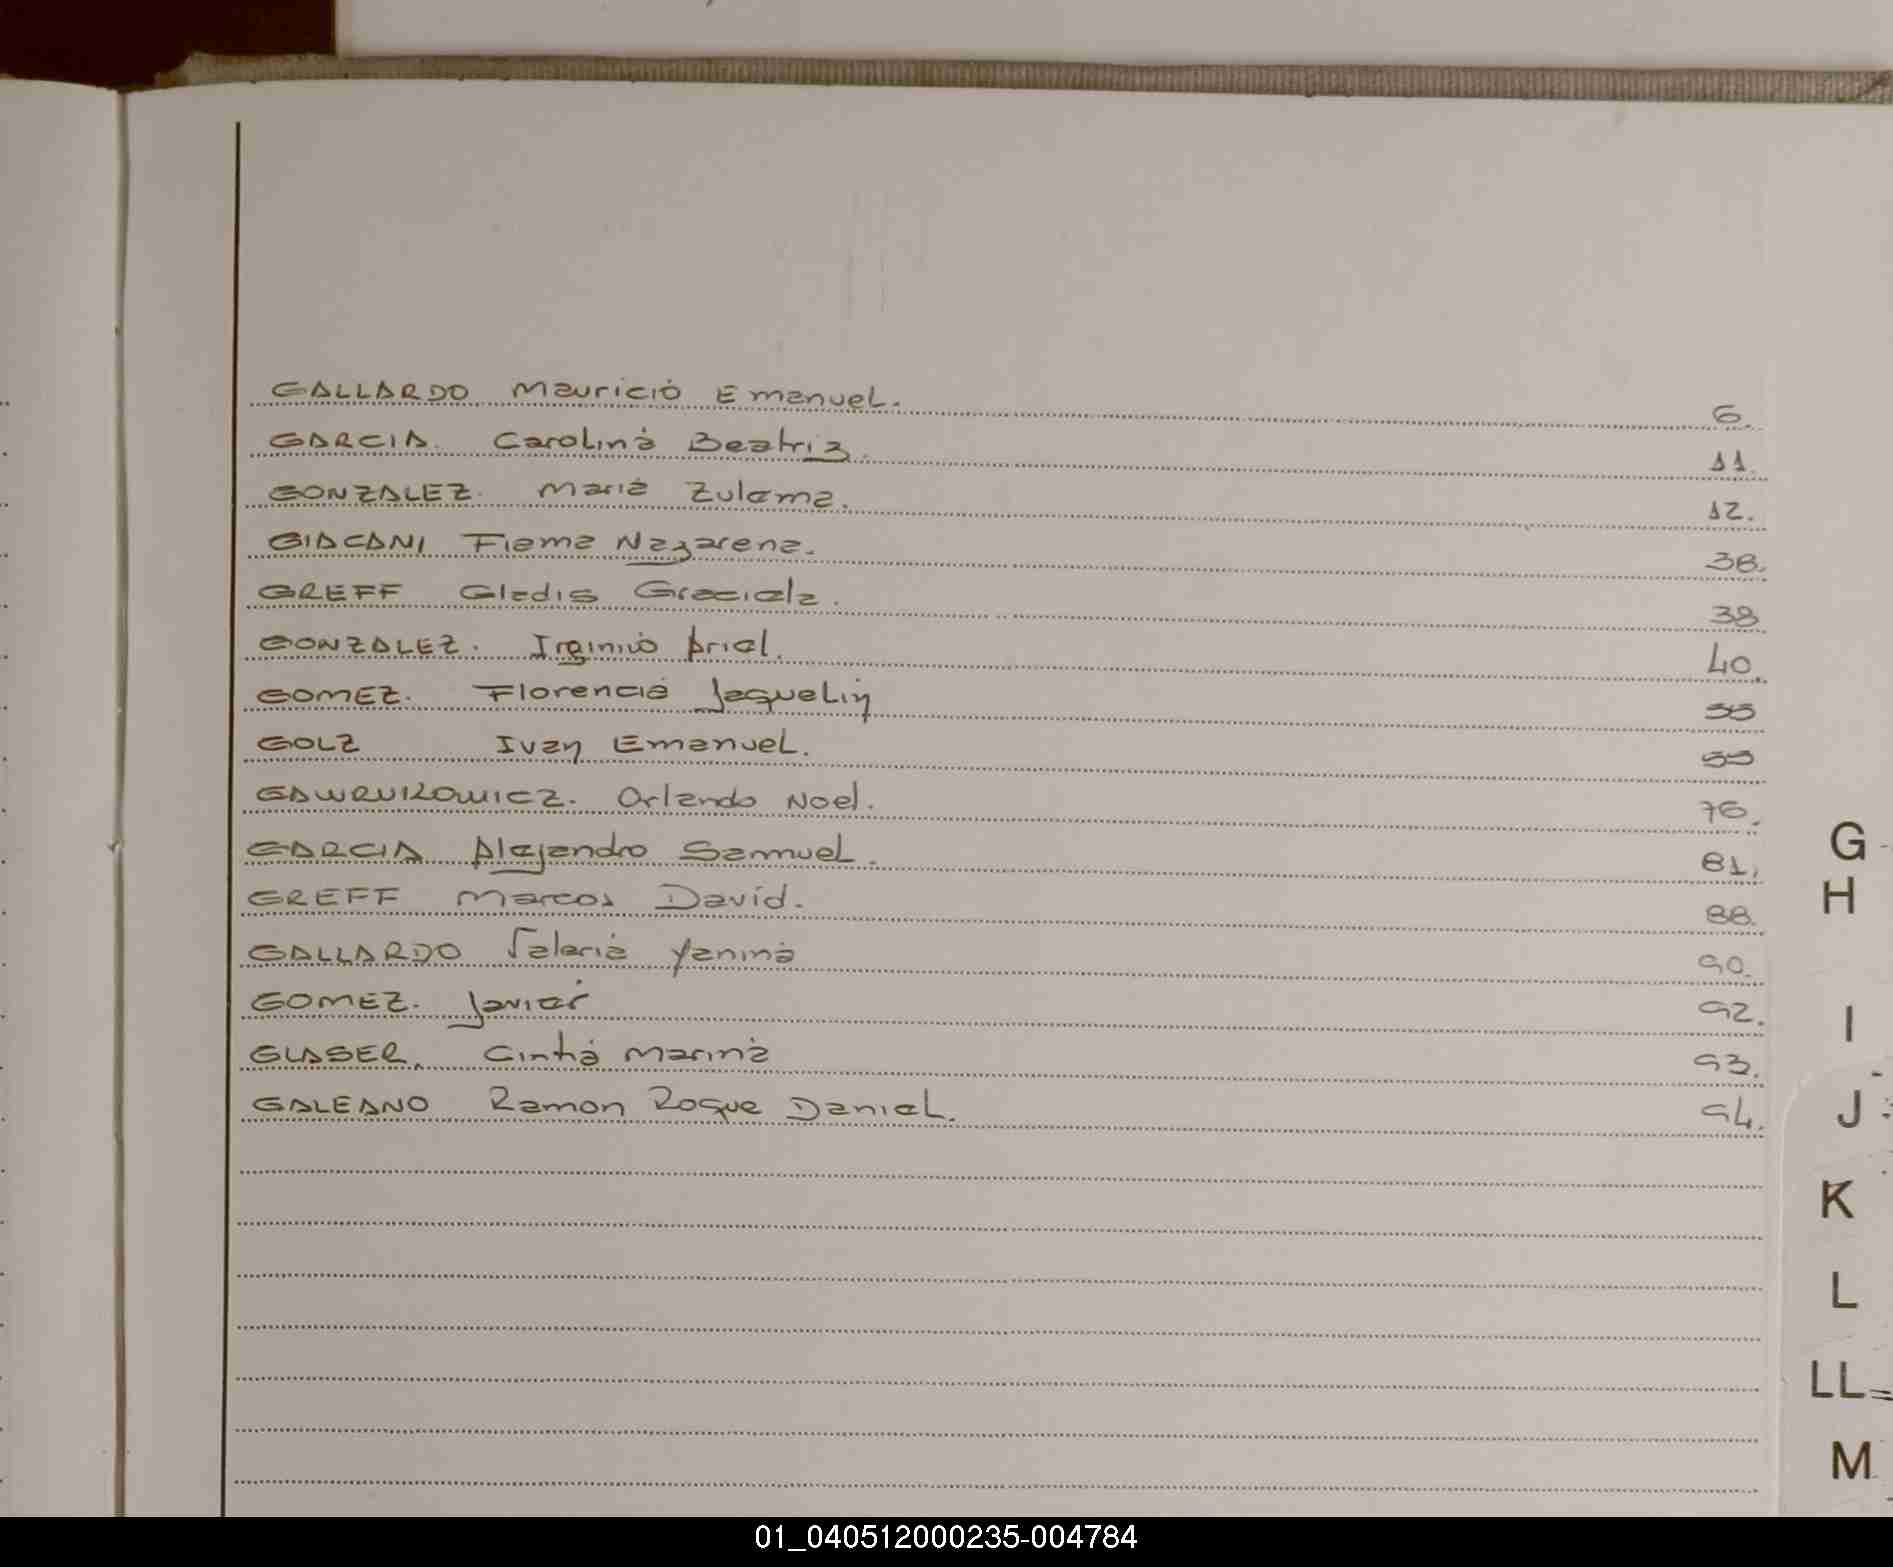 GALLARDO Mauricio Emanuel. 6.
GARCIA. Carolina Beatriz. 11.
GONZALEZ. Maria Zulema. 12.
GIACANI Fiama Nazarena. 38.
GREFF Gladis Graciela. 38
GONZALEZ. Ariel. 40.
GOMEZ. Florencia Jaquelin
GOLZ Ivan Emanuel.
Orlando Noel. 76.
GARCIA Alejandro Samuel. 81.
GREFF Marcos David. 88.
GALLARDO Valeria Yanina 90.
GOMEZ. Javier 92.
GLASER. Cintia Marina 93.
GALEANO Ramon Roque Daniel. 94.
G
H
I
J
K
L
LL
M
01_040512000235-004784